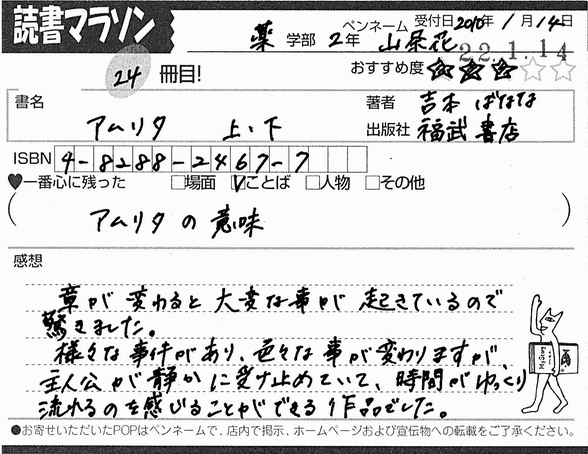 読書マラソン
薬 学部 2年 ペンネーム 山茶花 受付日2010年 1月 14日
22.1.14
24 冊目! おすすめ度 ★★★☆☆
書名 アムリタ 上・下
著者 吉本 ばなな
出版社 福武書店
ISBN 4-8288-2467-7
♥一番心に残った □場面 ☑ことば □人物 □その他
( アムリタの意味 )
感想
章が変わると大変な事が起きているので
驚きました。
様々な事件があり、色々な事が変わりますが、
主人公が静かに受け止めていて、時間がゆっくり
流れるのを感じることができる作品でした。
●お寄せいただいたPOPはペンネームで、店内で掲示、ホームページおよび宣伝物への転載をご了承ください。